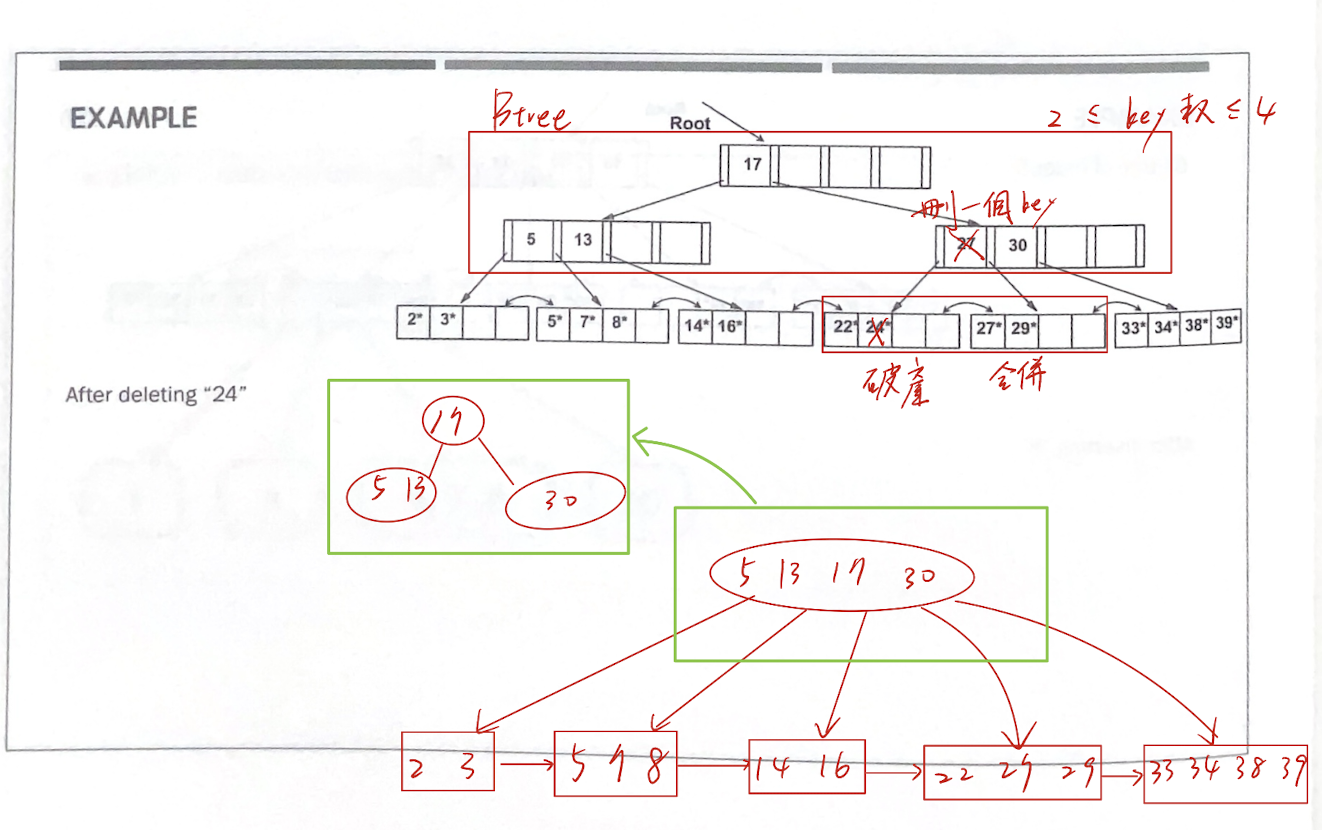 EXAMPLE
Btree
Root
2 ≤ key 数 ≤ 4
17
刪一個key
5 13
27 30
2* 3*
5* 7* 8*
14* 16*
22* 24*
27* 29*
33* 34* 38* 39*
破產 合併
After deleting “24”
17
5 13
30
5 13 17 30
2 3
5 7 8
14 16
22 27 29
33 34 38 39